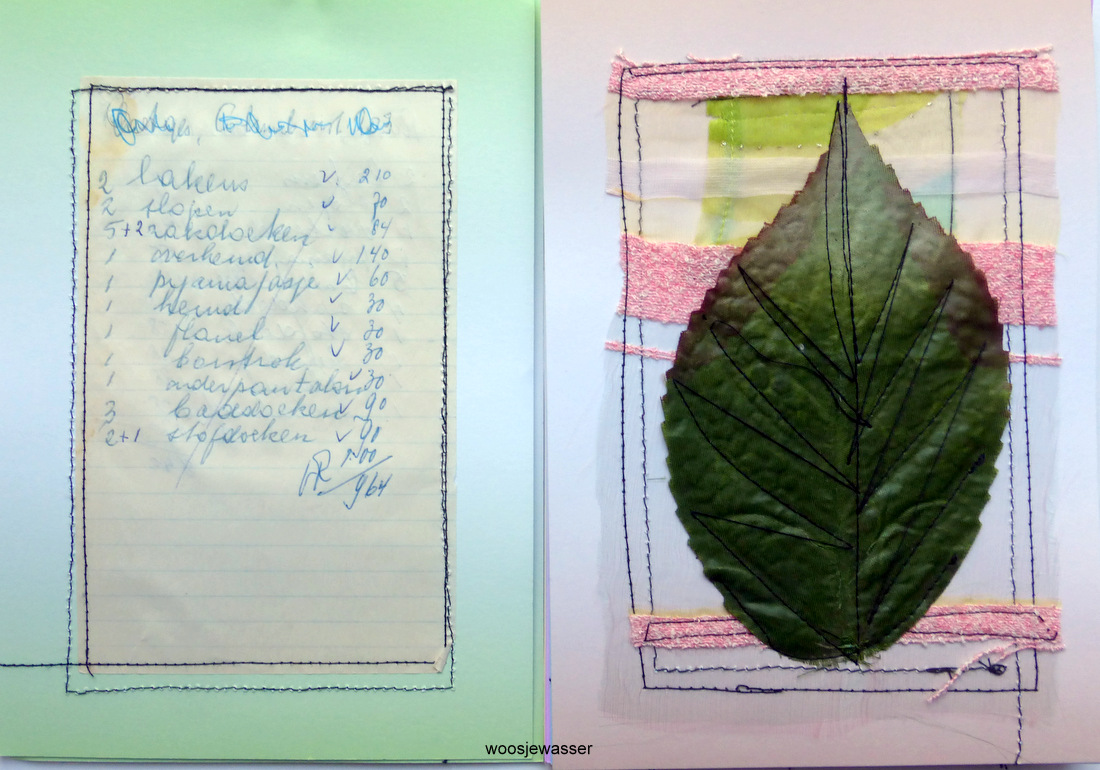 2 lakens v 210
2 slopen v 70
5+2 zakdoeken v 84
1 overhemd v 140
1 pyjamajasje v 60
1 hemd v 30
1 flanel v 30
1 borstrok v 30
1 onderpantalon v 30
3 baddoeken v 90
2+1 stofdoeken v 90
964
woosjewasser